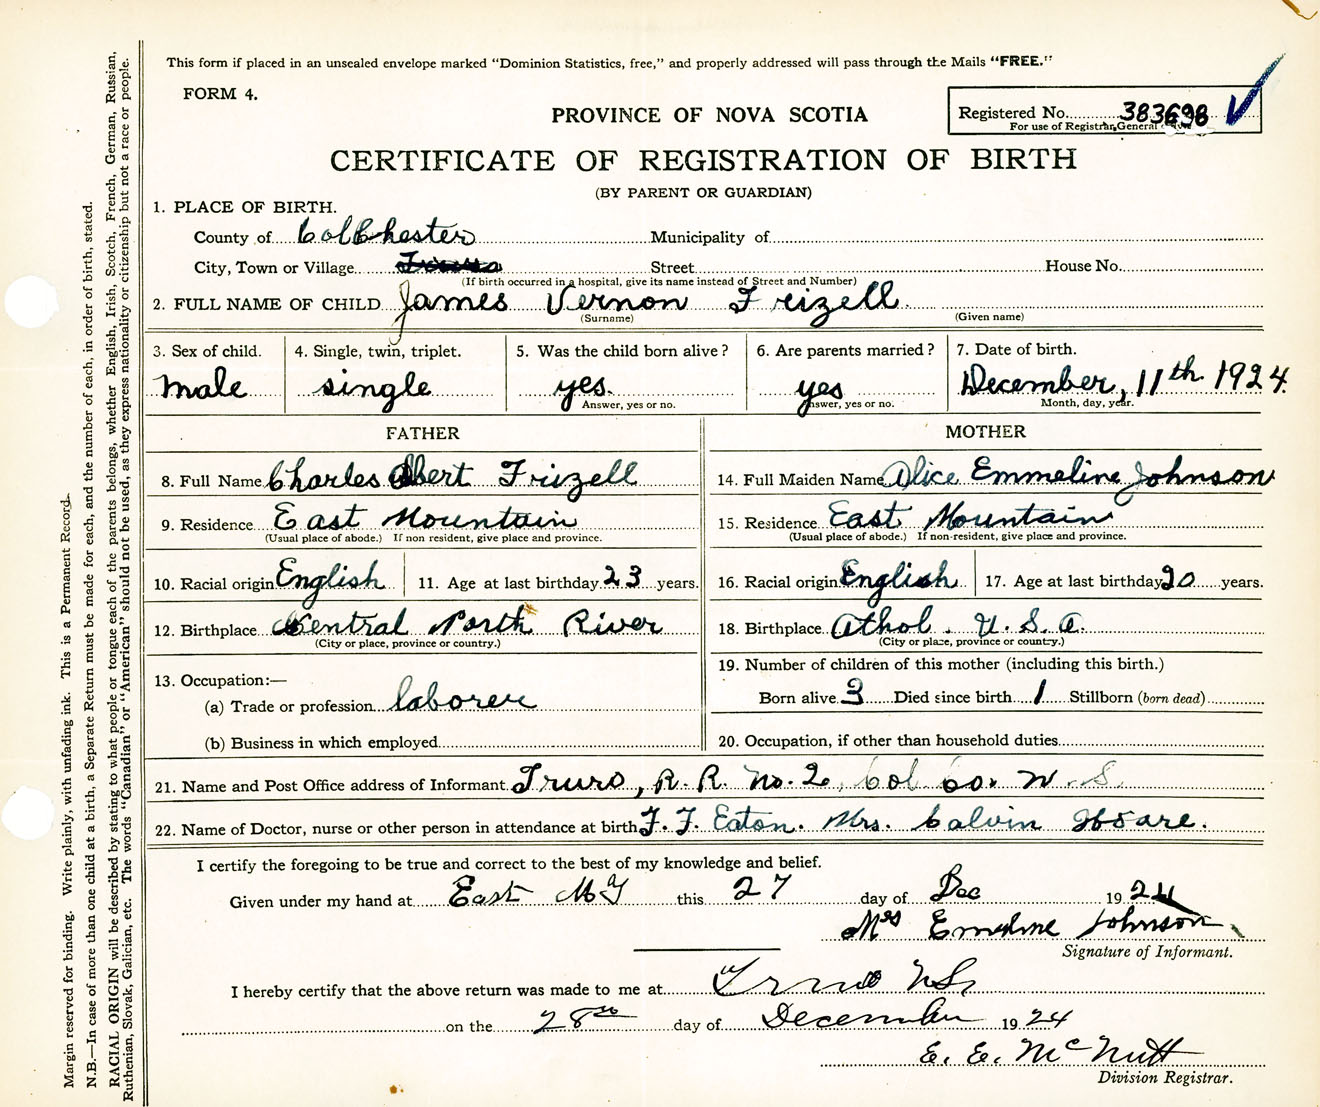 This form if placed in an unsealed envelope marked “Dominion Statistics, free,” and properly addressed will pass through the Mails “FREE.”
FORM 4.
PROVINCE OF NOVA SCOTIA
Registered No. 383698
For use of Registrar General
CERTIFICATE OF REGISTRATION OF BIRTH
(BY PARENT OR GUARDIAN)
1. PLACE OF BIRTH.
County of Colchester Municipality of
City, Town or Village Truro Street House No.
(If birth occurred in a hospital, give its name instead of Street and Number)
2. FULL NAME OF CHILD James Vernon Frizell
(Surname) (Given name)
3. Sex of child. 4. Single, twin, triplet. 5. Was the child born alive? 6. Are parents married? 7. Date of birth.
male single yes. yes December, 11th 1924.
Answer, yes or no. Answer, yes or no. Month, day, year.
FATHER MOTHER
8. Full Name Charles Albert Frizell 14. Full Maiden Name Alice Emmeline Johnson
9. Residence East Mountain 15. Residence East Mountain
(Usual place of abode.) If non resident, give place and province. (Usual place of abode.) If non-resident, give place and province.
10. Racial origin English 11. Age at last birthday 23 years. 16. Racial origin English 17. Age at last birthday 20 years.
12. Birthplace Central North River 18. Birthplace Athol. U.S.A.
(City or place, province or country.) (City or place, province or country.)
13. Occupation:— 19. Number of children of this mother (including this birth.)
(a) Trade or profession laborer Born alive 3 Died since birth 1 Stillborn (born dead)
(b) Business in which employed 20. Occupation, if other than household duties
21. Name and Post Office address of Informant Truro, R.R. No. 2, Col Co. N.S.
22. Name of Doctor, nurse or other person in attendance at birth F. F. Eaton. Mrs. Calvin Hoare.
I certify the foregoing to be true and correct to the best of my knowledge and belief.
Given under my hand at East Mt this 27 day of Dec 1924
Mrs Emeline Johnson
Signature of Informant.
I hereby certify that the above return was made to me at Truro NS,
on the 28th day of December 1924
E. E. McNutt
Division Registrar.
Margin reserved for binding. Write plainly, with unfading ink. This is a Permanent Record.
N.B.—In case of more than one child at a birth, a Separate Return must be made for each, and the number of each, in order of birth, stated.
RACIAL ORIGIN will be described by stating to what people or tongue each of the parents belongs, whether English, Irish, Scotch, French, German, Russian,
Ruthenian, Slovak, Galician, etc. The words “Canadian” or “American” should not be used, as they express nationality or citizenship but not a race or people.